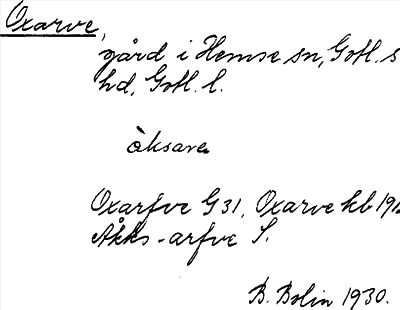 Oxarve,
gård i Hemse sn, Gotl. s
hd, Gotl. l.
àksarve
Oxarfve G 31, Oxarve kb 191
Åkks-arfve S.
B. Bolin 1930.